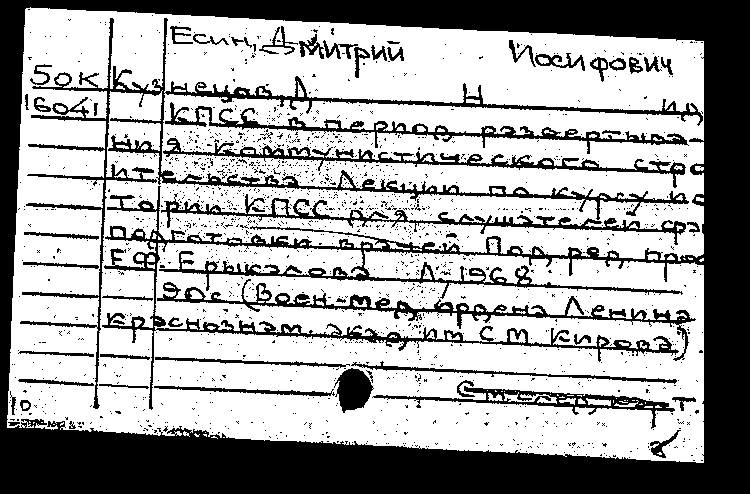 Есин, Дмитрий Иосифович
50к Кузнецов, Д Н ид
16041 КПСС в период развертыва-
ния коммунистического стро
ительства Лекции по курсу ис
тории КПСС для слушателей фа
подготовки врачей Под, ред, проф
Е.Ф. Ерыкалова Л, 1968.
90с (Воен-мед, ордена Ленина
краснознам. акад, им С М Кирова)
См след, карт.
10